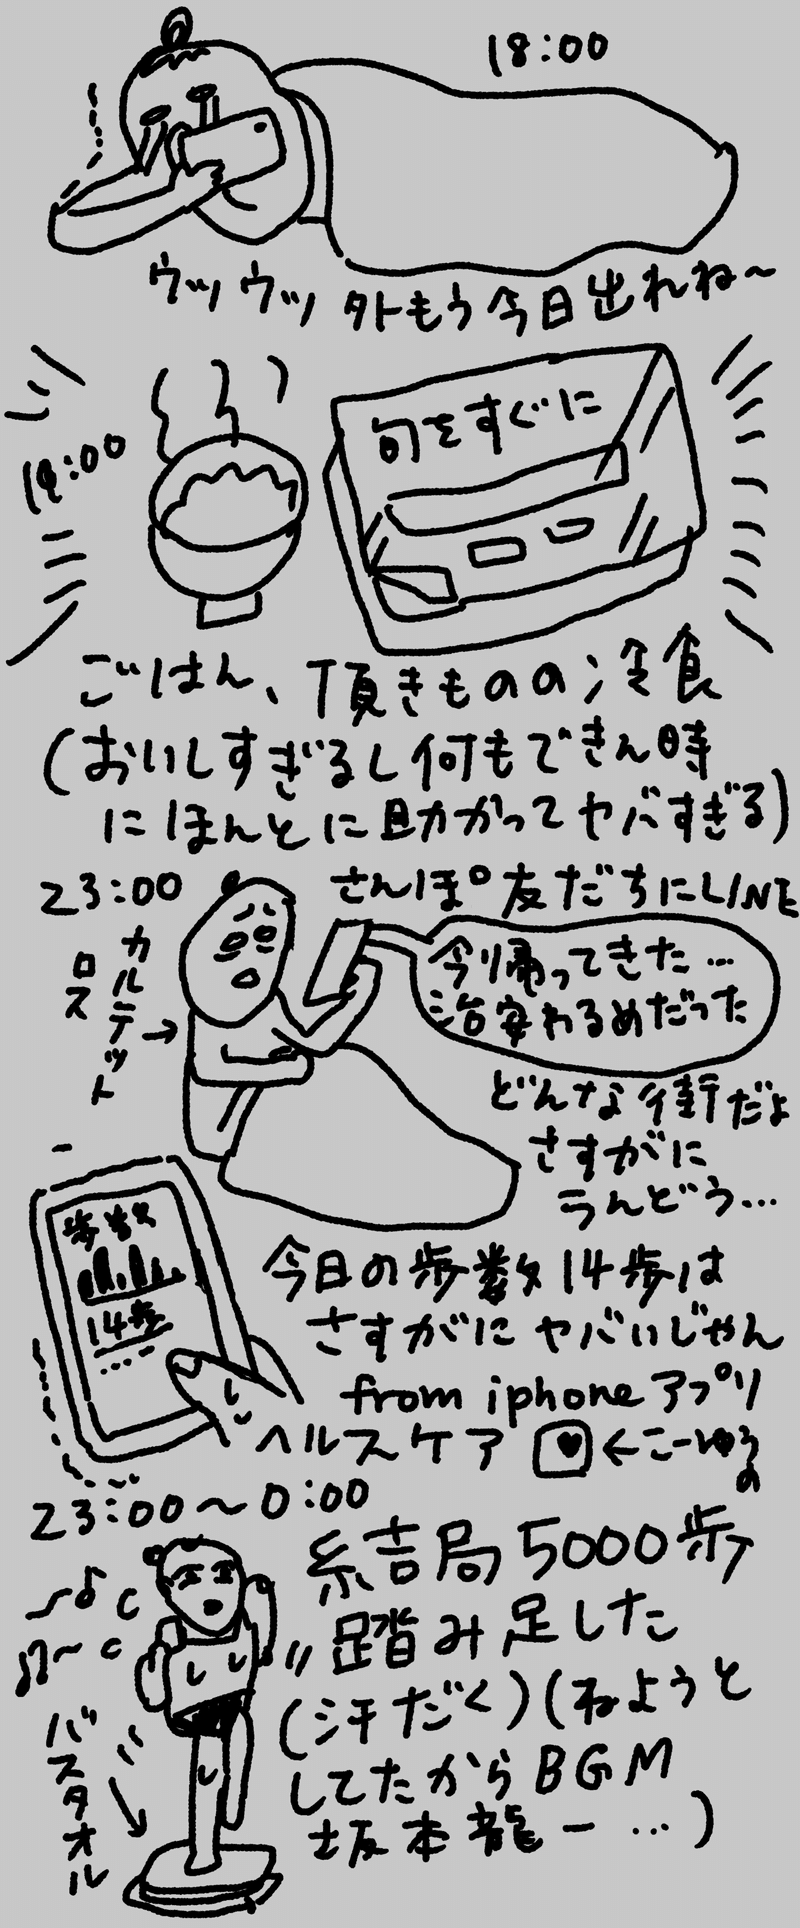 18:00
ウッウッ 外もう今日出れね〜
19:00
旬をすぐに
ごはん、頂きものの冷食
(おいしすぎるし何もできん時
にほんとに助かってヤバすぎる)
23:00
さんぽ友だちにLINE
カルテット
ロス
今帰ってきた…
治安わるめだった
どんな街だよ
さすがに
うんどう…
歩数
14歩
今日の歩数14歩は
さすがにヤバいじゃん
from iphoneアプリ
ヘルスケア ←こーゆうの
23:00〜0:00
結局5000歩
踏み足した
(汗だく)(ねようと
してたからBGM
坂本龍一…)
バスタオル